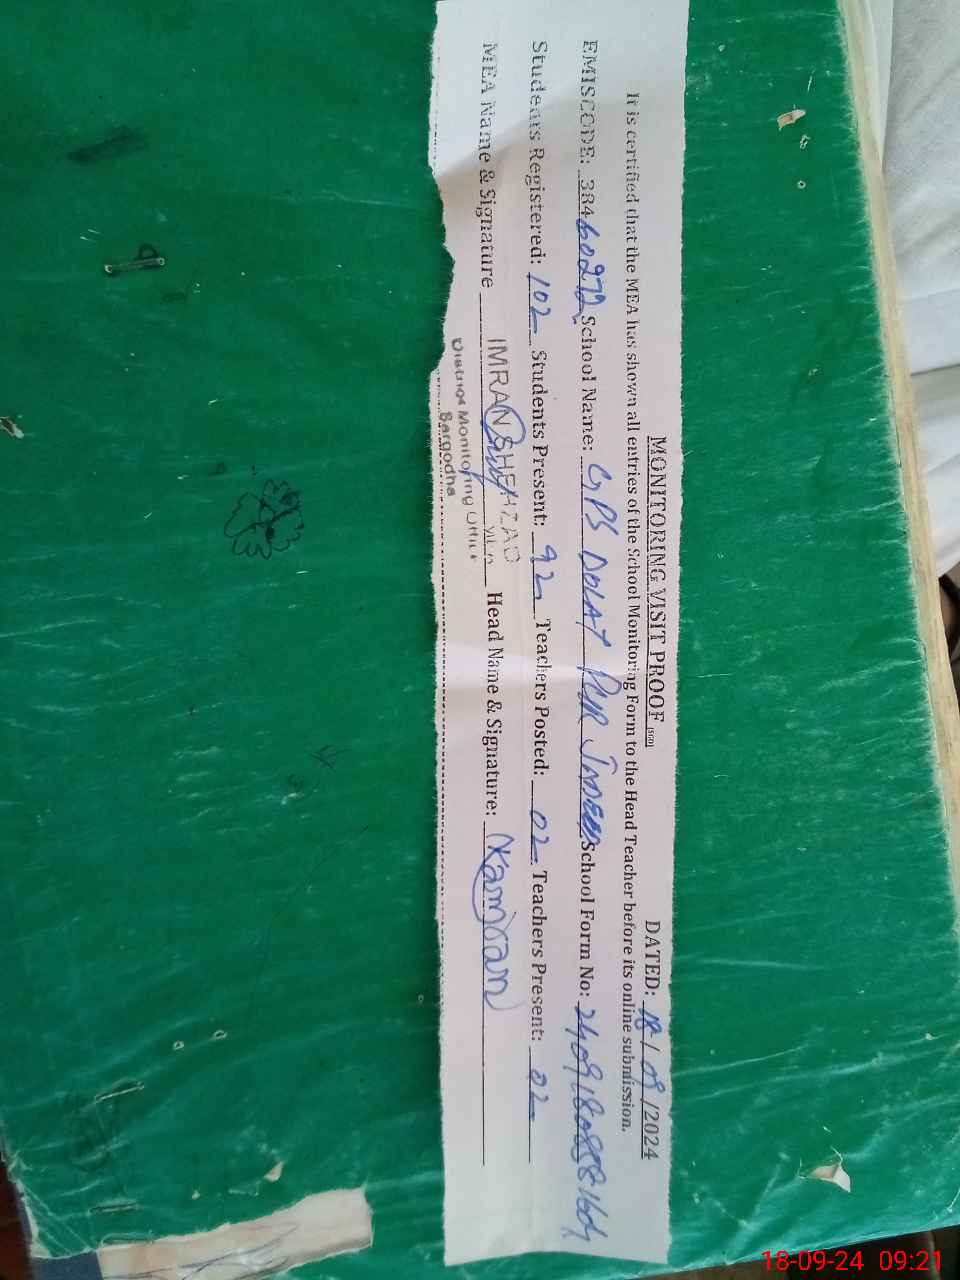 MONITORING VISIT PROOF (SGD) DATED: 18 / 09 /2024
It is certified that the MEA has shown all entries of the School Monitoring Form to the Head Teacher before its online submission.
EMISCODE: 38460272 School Name: GPS DOLAT PUR School Form No:
Students Registered: 102 Students Present: 92 Teachers Posted: 02 Teachers Present: 02
MEA Name & Signature IMRAN SHEHZAD Head Name & Signature: Kamran
MEA
District Monitoring Office
Sargodha
18-09-24 09:21